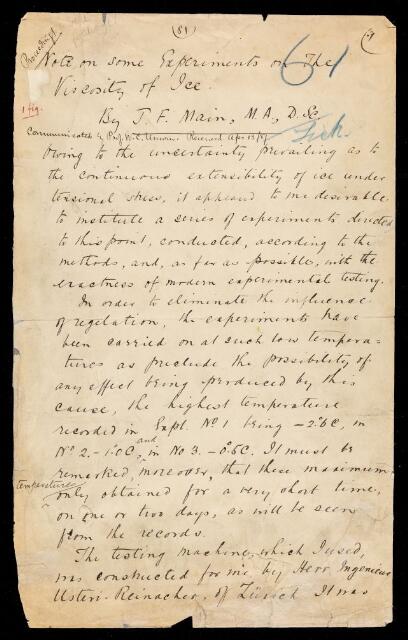 Proceedings
(81)
61
Note on some Experiments on The
Viscosity of Ice.
1 fig.
By J. F. Main, M.A., D.Sc.
Communicated by Prof. W.C. Unwin. Received Apr. 13/87.
Owing to the uncertainty prevailing as to
the continuous extensibility of ice under
tensional stress, it appeared to me desirable
to institute a series of experiments directed
to this point, conducted, according to the
methods, and, as far as possible, with the
exactness of modern experimental testing.
In order to eliminate the influence
of regelation, the experiments have
been carried on at such low tempera-
tures as preclude the possibility of
any effect being produced by this
cause, the highest temperature
recorded in Expt. No 1 being -2.°6C, in
No 2. -1.°0C, and in No 3. -0.°5C. It must be
remarked, moreover, that these maximum
temperatures
only obtained for a very short time,
on one or two days, as will be seen
from the records.
The testing machine, which I used,
was constructed for me by Herr Ingenieur
Usteri-Reinacher, of Zürich. It was